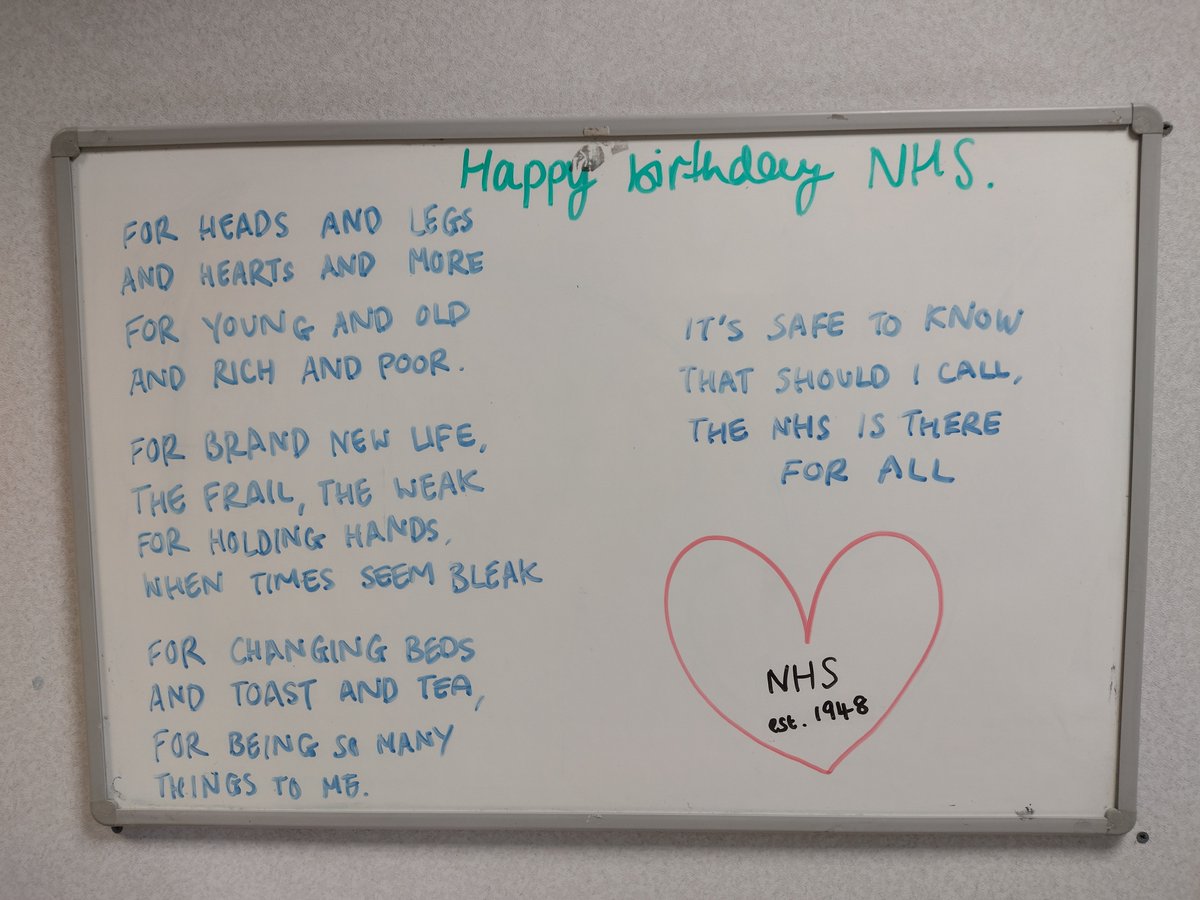 Happy birthday NHS.
FOR HEADS AND LEGS
AND HEARTS AND MORE
FOR YOUNG AND OLD
AND RICH AND POOR.
FOR BRAND NEW LIFE,
THE FRAIL, THE WEAK
FOR HOLDING HANDS,
WHEN TIMES SEEM BLEAK
FOR CHANGING BEDS
AND TOAST AND TEA,
FOR BEING SO MANY
THINGS TO ME.
IT'S SAFE TO KNOW
THAT SHOULD I CALL,
THE NHS IS THERE
FOR ALL
NHS
est. 1948